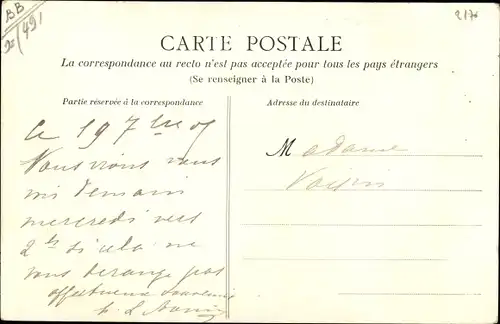 BB
491
217
CARTE POSTALE
La correspondance au recto n'est pas acceptée pour tous les pays étrangers
(Se renseigner à la Poste)
Partie réservée à la correspondance
Ce 19 7bre 05
vous
demain
mercredi vers
2h si cela ne
vous derange pas
affectueux souvenir
Adresse du destinataire
Madame
Voisin